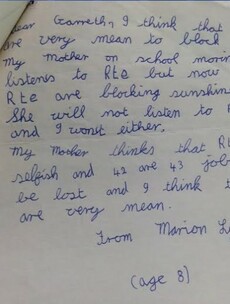 ear Garreth, I think that
are very mean to block
My mother on school morin
listens to Rte but now
Rte are blocking sunshin
She will not listen to
and I wont either.
My Mother thinks that Rt
selfish and 42 are 43 job
be lost and I think t
are very mean.
From Marion L
(age 8)